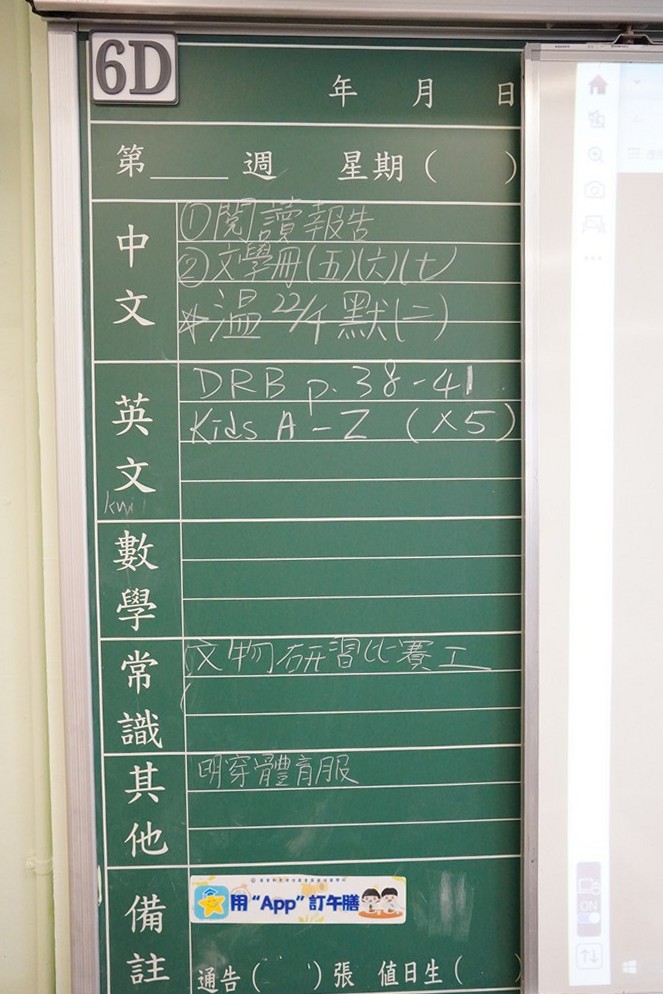 6D
年 月 日
第____週 星期( )
中文
①閱讀報告
②文學冊(五)(六)(七)
*溫22/4默(二)
英文
DRB p.38-41
Kids A-Z (×5)
數學
常識
文物研習比賽工
其他
明穿體育服
備註
用“App”訂午膳
通告( )張 值日生( )
ON